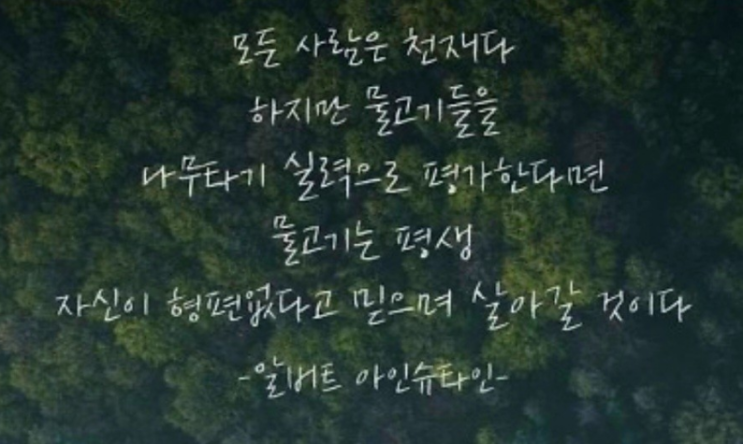 모든 사람은 천재다
하지만 물고기들을
나무타기 실력으로 평가한다면
물고기는 평생
자신이 형편없다고 믿으며 살아갈 것이다
-알버트 아인슈타인-